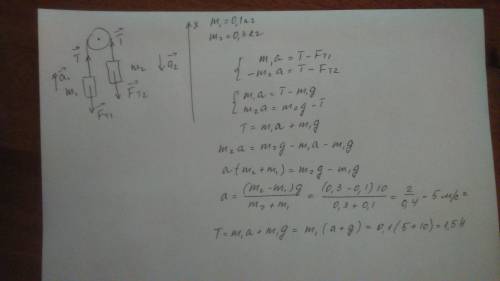 x
m₁ = 0,1кг
m₂ = 0,3кг
T⃗ T⃗
a⃗₁ m₁ m₂ a⃗₂
F⃗т1 F⃗т2
{ m₁a = T - Fт1
-m₂a = T - Fт2
{ m₁a = T - m₁g
m₂a = m₂g - T
T = m₁a + m₁g
m₂a = m₂g - m₁a - m₁g
a·(m₂ + m₁) = m₂g - m₁g
a = (m₂ - m₁)g / m₂ + m₁ = (0,3 - 0,1)10 / 0,3 + 0,1 = 2 / 0,4 = 5 м/с²
T = m₁a + m₁g = m₁(a + g) = 0,1(5 + 10) = 1,5 Н